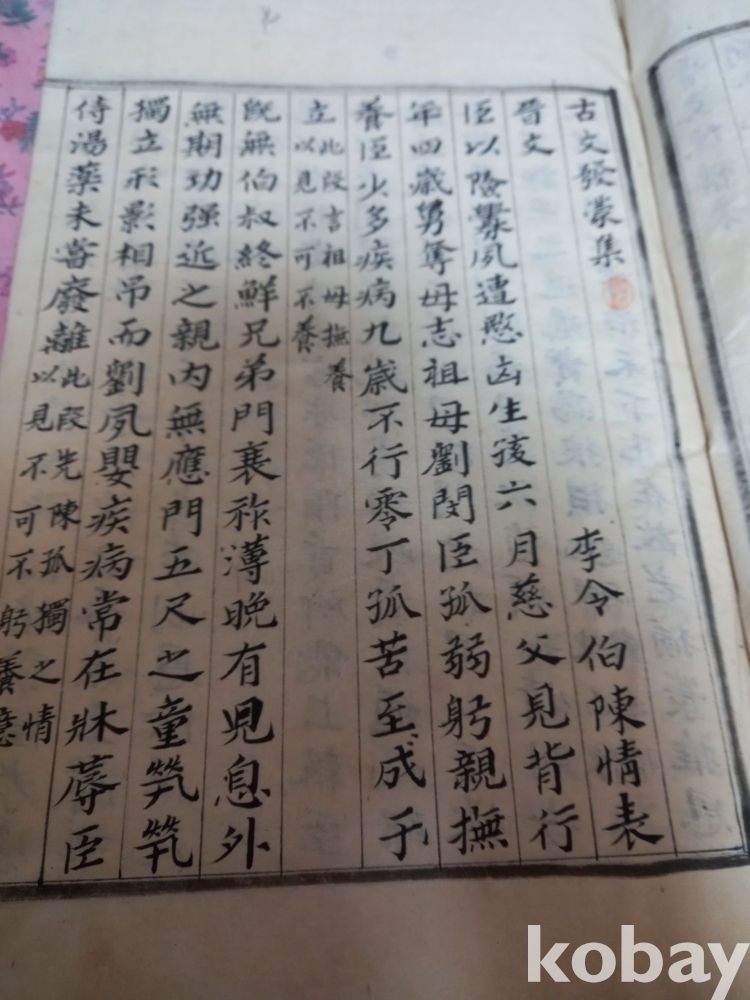 古文發蒙集 李令伯陳情表
晉文
臣以險釁夙遭愍凶生孩六月慈父見背行
年四歲舅奪母志祖母劉閔臣孤弱躬親撫
養臣少多疾病九歲不行零丁孤苦至成于
立此段言祖母撫養
以見不可不養
旣無伯叔終鮮兄弟門衰祚薄晩有兒息外
無期功强近之親內無應門五尺之童煢煢
獨立形影相吊而劉夙嬰疾病常在牀蓐臣
侍湯藥未甞廢離此段先陳孤獨之情
以見不可不躬養意
kobay